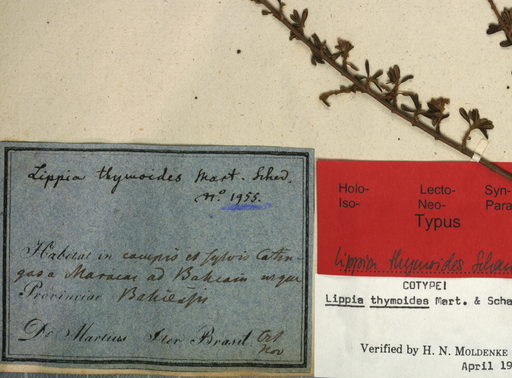 Lippia thymoides Mart. Sched.
nº. 1955.
Habitat in campis et sylvis Catin-
gas a Maracas ad Bahiam usque
Provinciae Bahiensis
Dr Martius Iter Brasil Oct
Nov
Holo- Lecto- Syn-
Iso- Neo- Para
Typus
Lippia thymoides Schau
COTYPE!
Lippia thymoides Mart. & Scha
Verified by H. N. MOLDENKE
April 19